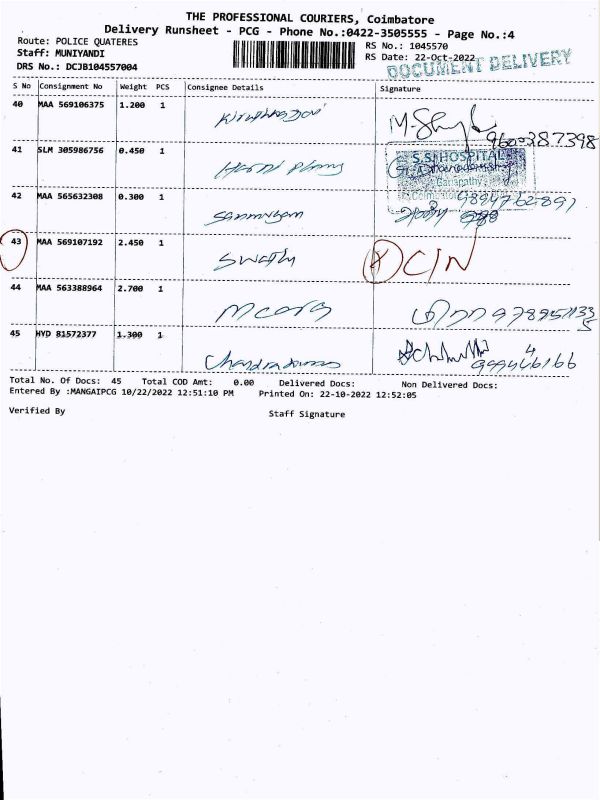 THE PROFESSIONAL COURIERS, Coimbatore
Delivery Runsheet - PCG - Phone No.:0422-3505555 - Page No.:4
Route: POLICE QUATERES
Staff: MUNIYANDI
DRS No.: DCJB104557004
RS No.: 1045570
RS Date: 22-Oct-2022
DOCUMENT DELIVERY
S No Consignment No Weight PCS Consignee Details Signature
40 MAA 569106375 1.200 1
9600387398
41 SLM 305986756 0.450 1
S.S. HOSPITAL
Ganapathy
42 MAA 565632308 0.300 1
43 MAA 569107192 2.450 1 Swathy
44 MAA 563388964 2.700 1
45 HYD 81572377 1.300 1
Total No. Of Docs: 45 Total COD Amt: 0.00 Delivered Docs: Non Delivered Docs:
Entered By :MANGAIPCG 10/22/2022 12:51:10 PM Printed On: 22-10-2022 12:52:05
Verified By Staff Signature